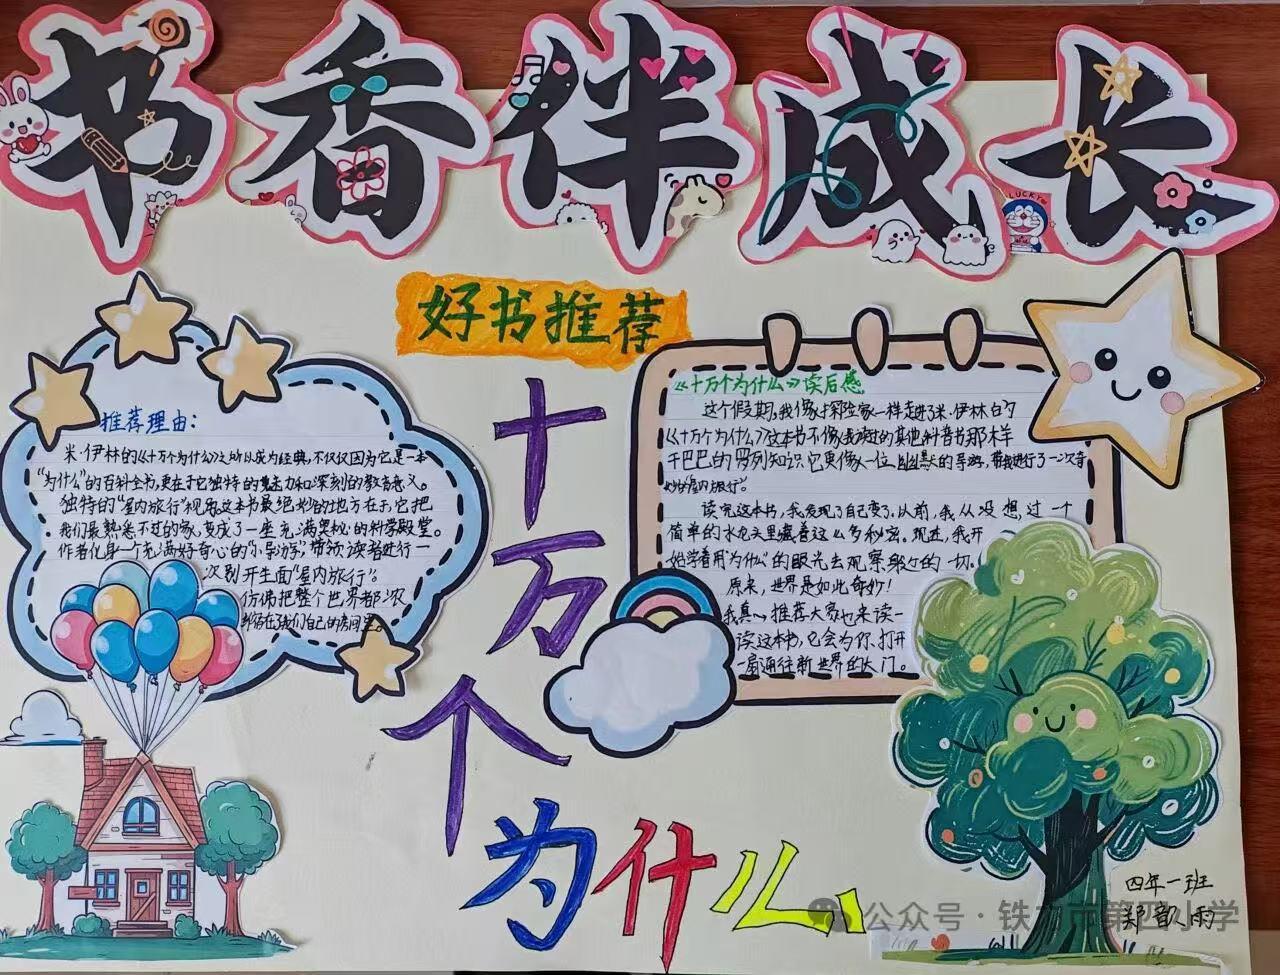 书香伴成长
LUCKY
好书推荐
十万个为什么
推荐理由:
米·伊林的《十万个为什么》之所以成为经典,不仅仅因为它是一本
"为什么"的百科全书,更在于它独特的魅力和深刻的教育意义。
独特的"屋内旅行"视角这本书最绝妙的地方在于,它把
我们最熟悉不过的家,变成了一座充满奥秘的科学殿堂。
作者化身一个充满好奇心的小导游,带领读者进行一
次别开生面"屋内旅行"。
仿佛把整个世界都浓
缩在我们自己的房间里。
《十万个为什么》读后感
这个假期,我像探险家一样走进了米·伊林的
《十万个为什么》这本书不像我读过的其他科普书那样
干巴巴的罗列知识,它更像一位幽默的导游,带我进行了一次奇
妙的"屋内旅行"。
读完这本书,我发现了自己变了。从前,我从没想过一个
简单的水龙头里藏着这么多秘密。现在,我开
始学着用"为什么"的眼光去观察身边的一切。
原来,世界是如此奇妙!
我真心推荐大家也来读一
读这本书,它会为你打开
一扇通往新世界的大门。
四年一班
郑歆雨
公众号·铁力市第四小学